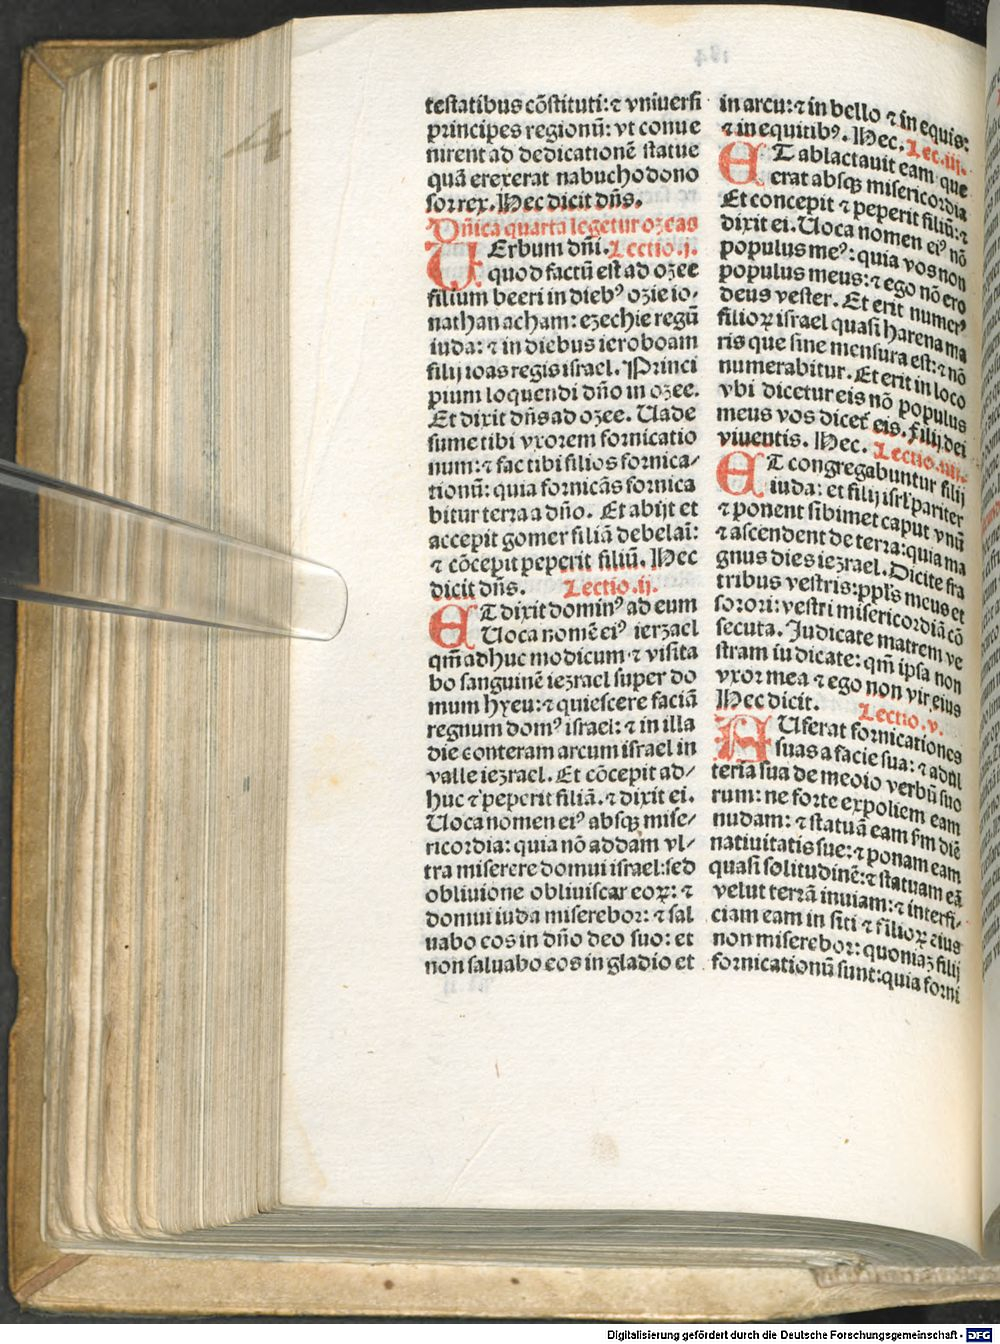 testatibus cōstituti: ⁊ vniuersi
principes regionū: vt conue
nirent ad dedicationē statue
quā erexerat nabuchodono
sor rex. Hec dicit dn̄s.
Dn̄ica quarta legetur ozeas
UErbum dn̄i. Lectio .j.
quod factū est ad ozee
filium beeri in dieb⁹ ozie io-
nathan acham: ezechie regū
iuda: ⁊ in diebus ieroboam
filij ioas regis israel. Princi
pium loquendi dn̄o in ozee.
Et dixit dn̄s ad ozee. Uade
sume tibi vxorem fornicatio
num: ⁊ fac tibi filios fornica-
tionū: quia fornicās fornica
bitur terra a dn̄o. Et abijt et
accepit gomer filiā debelai:
⁊ cōcepit peperit filiū. Hec
dicit dn̄s. Lectio .ij.
ET dixit domin⁹ ad eum
Uoca nomē ei⁹ ierzael
qm̄ adhuc modicum ⁊ visita
bo sanguinē iezrael super do
mum hyeu: ⁊ quiescere faciā
regnum dom⁹ israel: ⁊ in illa
die conteram arcum israel in
valle iezrael. Et cōcepit ad-
huc ⁊ peperit filiā. ⁊ dixit ei.
Uoca nomen ei⁹ absqꝫ mise-
ricordia: quia nō addam vl-
tra miserere domui israel: sed
obliuione obliuiscar eoꝝ: ⁊
domui iuda miserebor: ⁊ sal
uabo eos in dn̄o deo suo: et
non saluabo eos in gladio et
in arcu: ⁊ in bello ⁊ in equis:
⁊ in equitib⁹. Hec. Lec. iij.
ET ablactauit eam que
erat absqꝫ misericordia
Et concepit ⁊ peperit filiū: ⁊
dixit ei. Uoca nomen ei⁹ nō
populus me⁹: quia vos non
populus meus: ⁊ ego nō ero
deus vester. Et erit numer⁹
filioꝝ israel quasi harena ma
ris que sine mensura est: ⁊ nō
numerabitur. Et erit in loco
vbi dicetur eis nō populus
meus vos dicet̄ eis. filij dei
viuentis. Hec. Lectio .iiij.
ET congregabuntur filij
iuda: et filij isrl̄ pariter
⁊ ponent sibimet caput vnū
⁊ ascendent de terra: quia ma
gnus dies iezrael. Dicite fra
tribus vestris: ppl̄s meus et
sorori: vestri misericordiā cō
secuta. Judicate matrem ve
stram iudicate: qm̄ ipsa non
vxor mea ⁊ ego non vir eius
Hec dicit. Lectio .v.
AUferat fornicationes
suas a facie sua: ⁊ adul
teria sua de medio verbū suo
rum: ne forte expoliem eam
nudam: ⁊ statuā eam sm̄ diē
natiuitatis sue: ⁊ ponam eam
quasi solitudinē: ⁊ statuam eā
velut terrā inuiam: ⁊ interfi-
ciam eam in siti ⁊ filioꝝ eius
non miserebor: quoniaꝫ filij
fornicationū sunt: quia forni
Digitalisierung gefördert durch die Deutsche Forschungsgemeinschaft - DFG